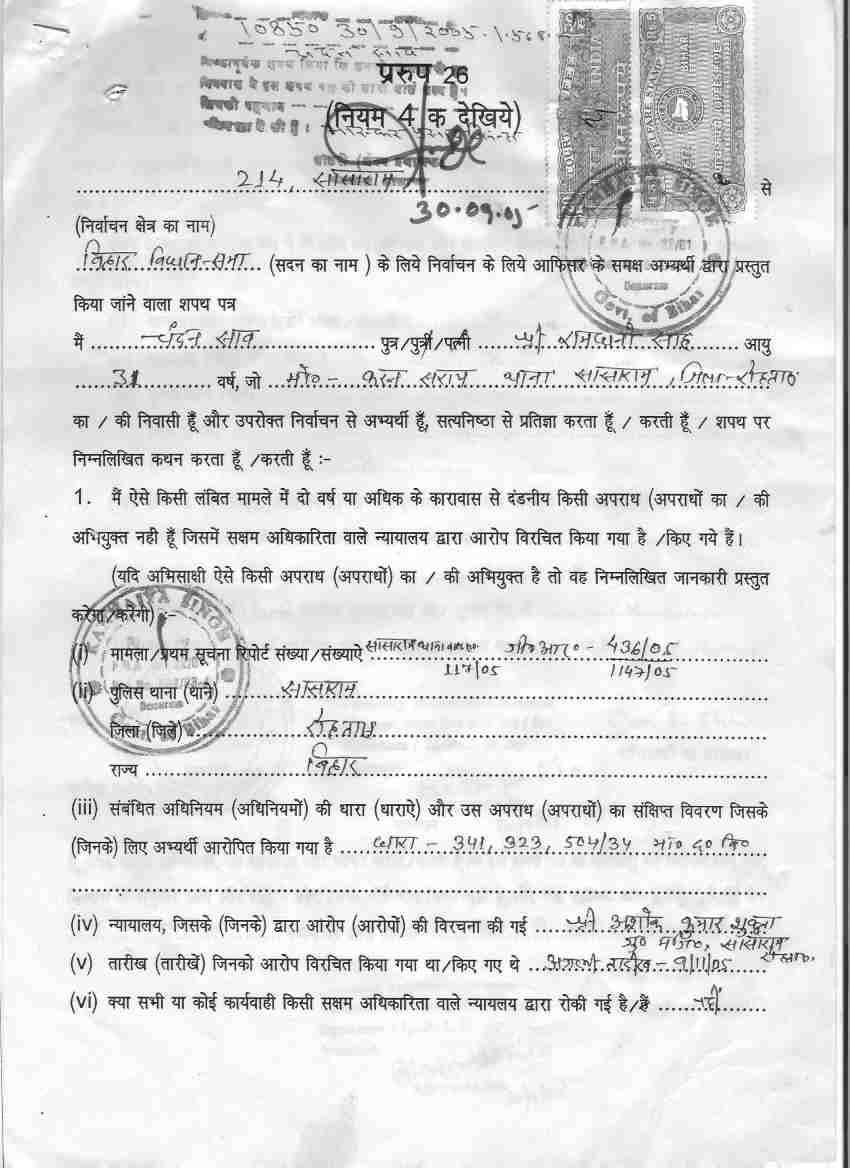 10850 30/9/2005
प्ररुप 26
(नियम 4 क देखिये)
214, सासाराम से
30.09.05
(निर्वाचन क्षेत्र का नाम)
बिहार विधान-सभा (सदन का नाम ) के लिये निर्वाचन के लिये आफिसर के समक्ष अभ्यर्थी द्वारा प्रस्तुत
किया जांने वाला शपथ पत्र
मैं चंदन साव पुत्र/पुत्री/पत्नी श्री रामदानी साह आयु
31 वर्ष, जो मो०- करन सराय थाना सासाराम, जिला-रोहतास
का / की निवासी हूँ और उपरोक्त निर्वाचन से अभ्यर्थी हूँ, सत्यनिष्ठा से प्रतिज्ञा करता हूँ / करती हूँ / शपथ पर
निम्नलिखित कथन करता हूँ /करती हूँ :-
1. मैं ऐसे किसी लंबित मामले में दो वर्ष या अधिक के कारावास से दंडनीय किसी अपराध (अपराधों का / की
अभियुक्त नही हूँ जिसमें सक्षम अधिकारिता वाले न्यायालय द्वारा आरोप विरचित किया गया है /किए गये हैं।
(यदि अभिसाक्षी ऐसे किसी अपराध (अपराधों) का / की अभियुक्त है तो वह निम्नलिखित जानकारी प्रस्तुत
करेगा/करेगी) :-
(i) मामला/प्रथम सूचना रिपोर्ट संख्या/संख्याऐ सासाराम थाना 117/05 जी० आर० - 436/05
1147/05
(ii) पुलिस थाना (थाने) सासाराम
जिला (जिले) रोहतास
राज्य बिहार
(iii) संबंधित अधिनियम (अधिनियमों) की धारा (धाराऐ) और उस अपराध (अपराधों) का संक्षिप्त विवरण जिसके
(जिनके) लिए अभ्यर्थी आरोपित किया गया है धारा - 341, 323, 504/34 भा० द० वि०
(iv) न्यायालय, जिसके (जिनके) द्वारा आरोप (आरोपों) की विरचना की गई श्री अशोक कुमार शुक्ला
सासाराम
(v) तारीख (तारीखें) जिनको आरोप विरचित किया गया था/किए गए थे अगली तारीख - 9/11/05
(vi) क्या सभी या कोई कार्यवाही किसी सक्षम अधिकारिता वाले न्यायलय द्वारा रोकी गई है/हैं नहीं